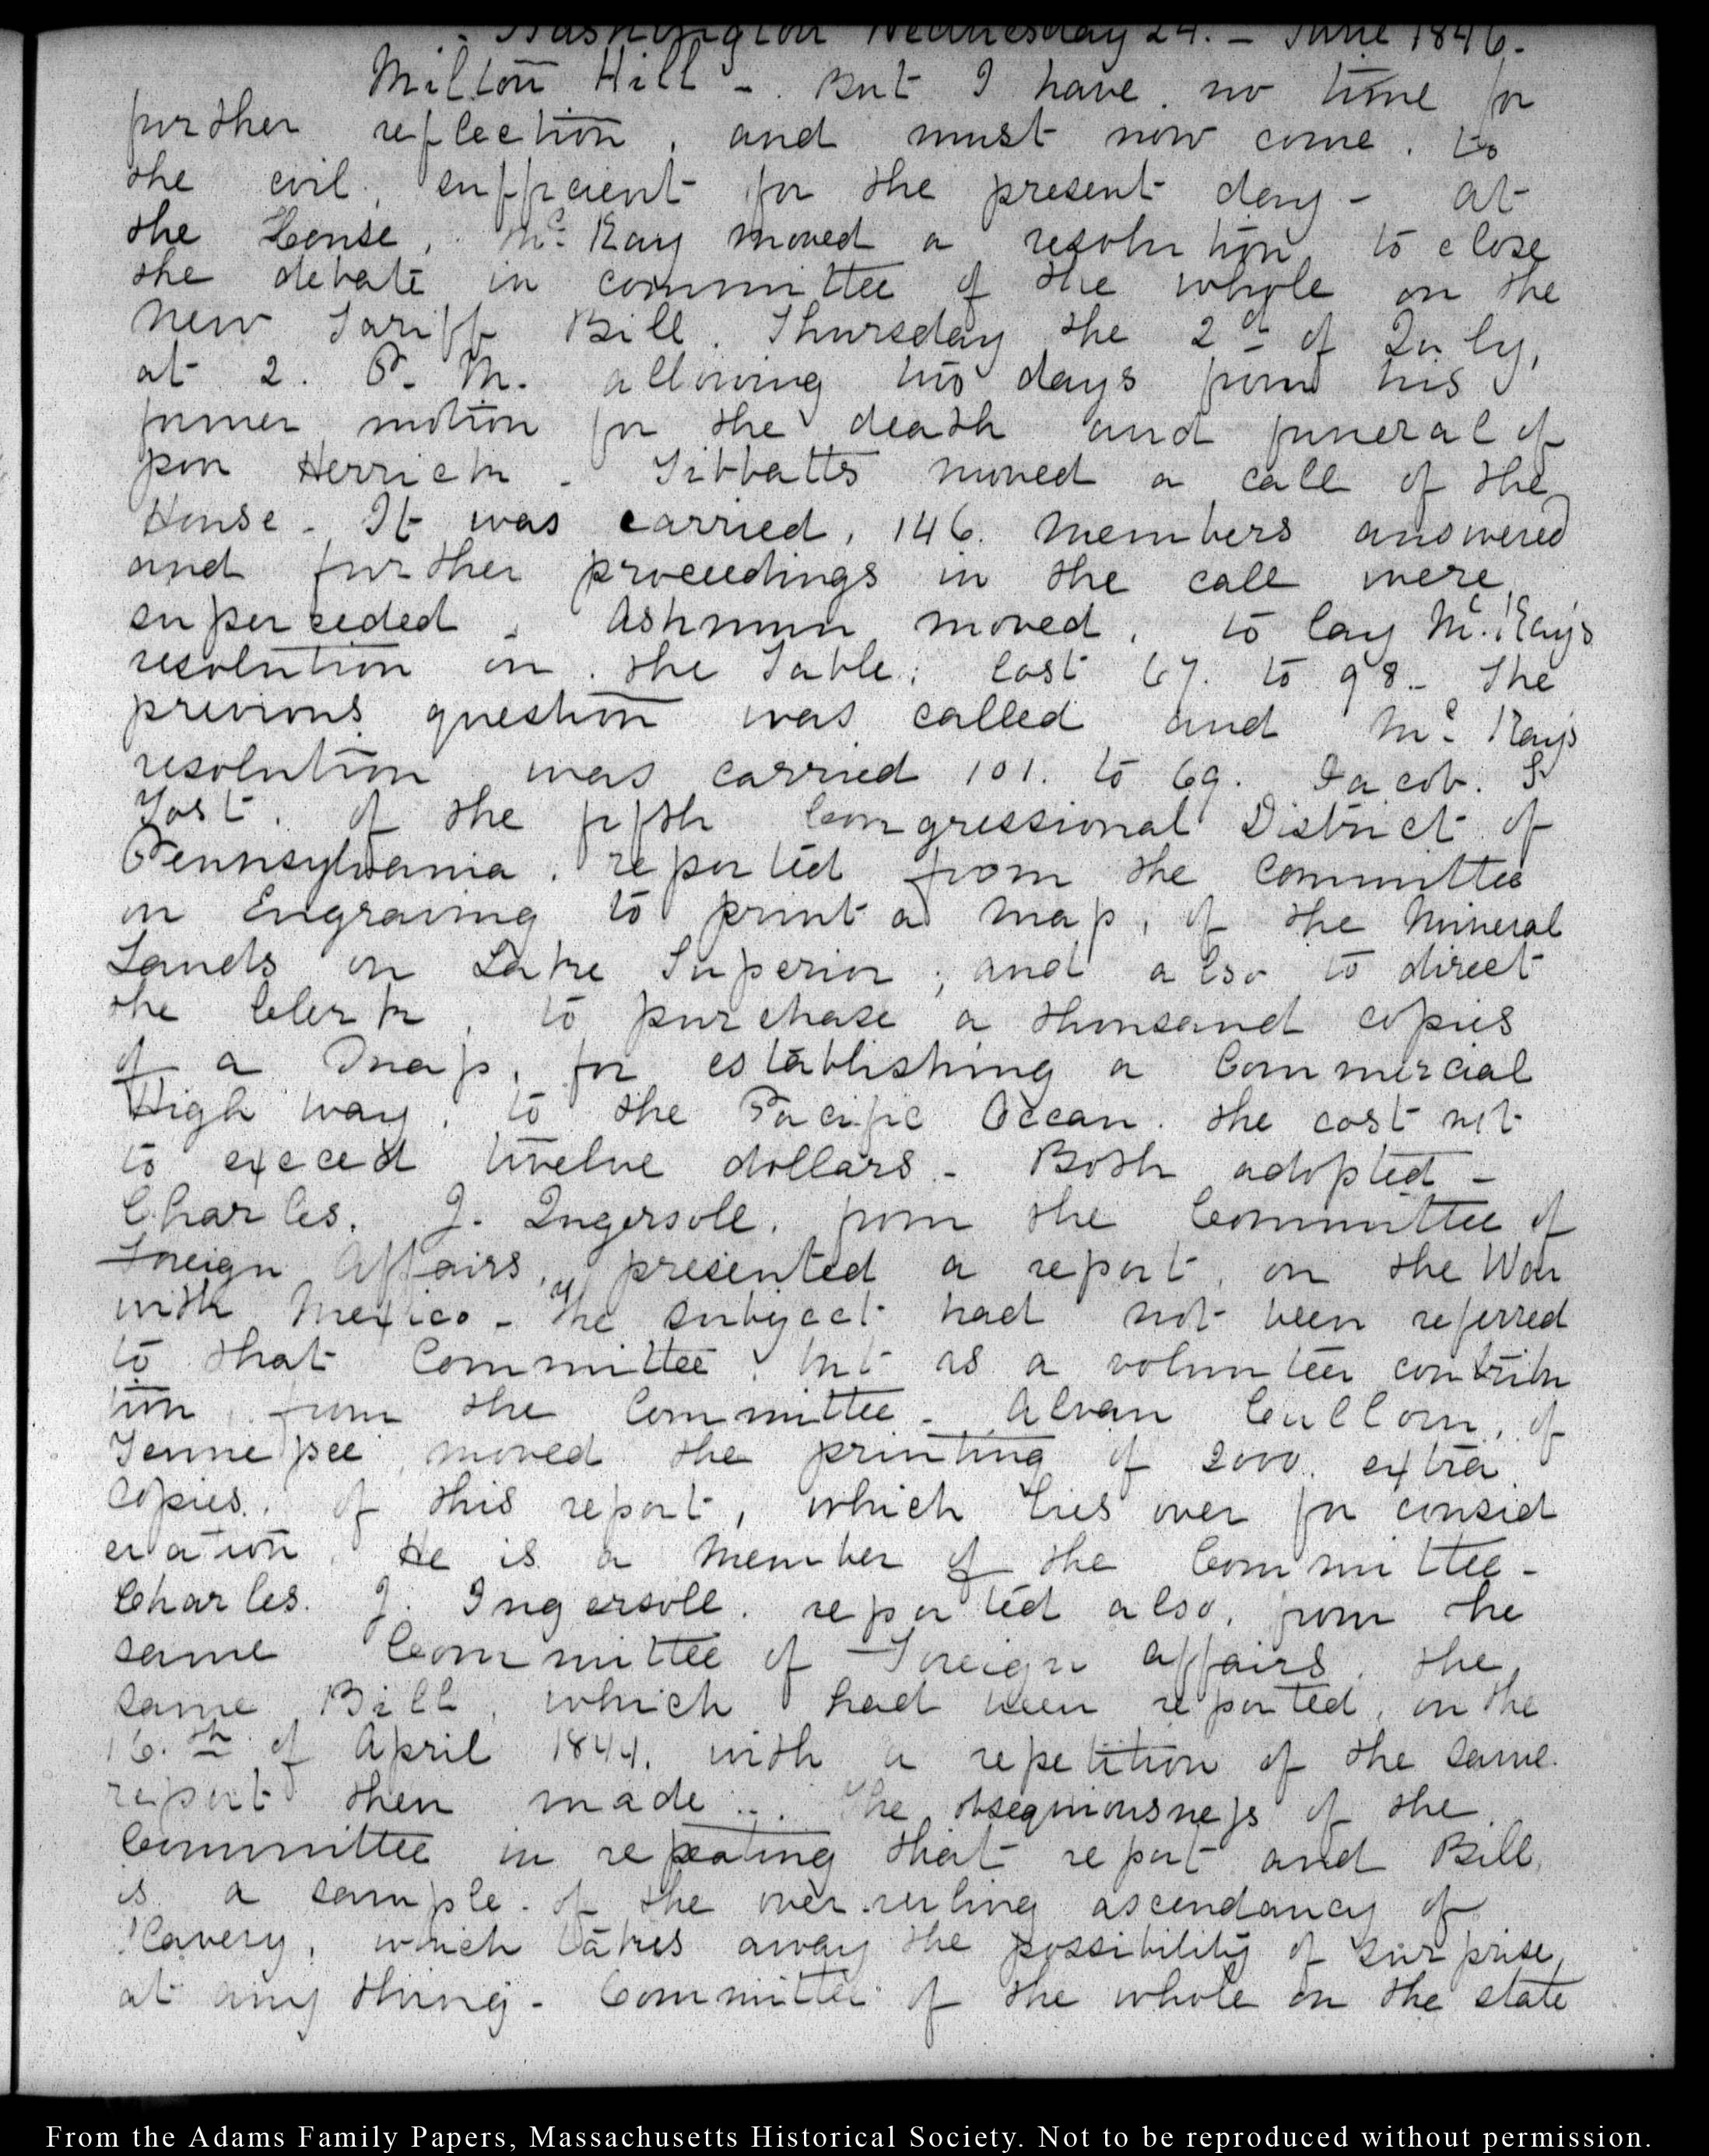 Washington Wednesday 24. – June 1846.
Milton Hill –. But I have. no time for
further reflection, and must now come. to
the evil, sufficient for the present day – At
the House, Mc. Kay moved a resolution, to close
the debate in committee of the whole on the
New Tariff Bill. Thursday the 2d of July,
at 2. P. M. allowing two days from his
former motion for the death and funeral of
poor Herrick – Tibbatts moved a call of the
House – It was carried, 146. Members answered
and further proceedings in the call were
superceded – Ashmun moved, to lay Mc. Kay's
resolution on the Table: lost 67. to 98 – The
previous question was called and Mc. Kay's
resolution was carried 101. to 69. Jacob. S
Yost, of the fifth Congressional District of
Pennsylvania, reported from the Committee
on Engraving to print a map, of the Mineral
Lands on Lake Superior; and also to direct
the Clerk, to purchase a thousand copies
of a Map, for establishing a Commercial
High way, to the Pacific Ocean. the cost not
to exceed twelve dollars – Both adopted –
Charles. J. Ingersoll. from the Committee of
Foreign Affairs, presented a report, on the War
with Mexico – The subject had not been referred
to that Committee, but as a volunteer contribu
tion, from the Committee – Alvan Cullom, of
Tennessee, moved the printing of 2000. extra
Copies. of this report, which lies over for consid
eration. He is a Member of the Committee –
Charles. J. Ingersoll. reported also, from the
same Committee of Foreign Affairs. the
same Bill, which had been reported, on the
16.th of April 1844, with a repetition of the same
report then made... The obsequiousness of the
Committee in repeating that report and Bill,
is a sample of the over.ruling ascendancy of
Slavery, which takes away the possibility of surprise,
at any thing – Committee of the whole on the state
From the Adams Family Papers, Massachusetts Historical Society. Not to be reproduced without permission.